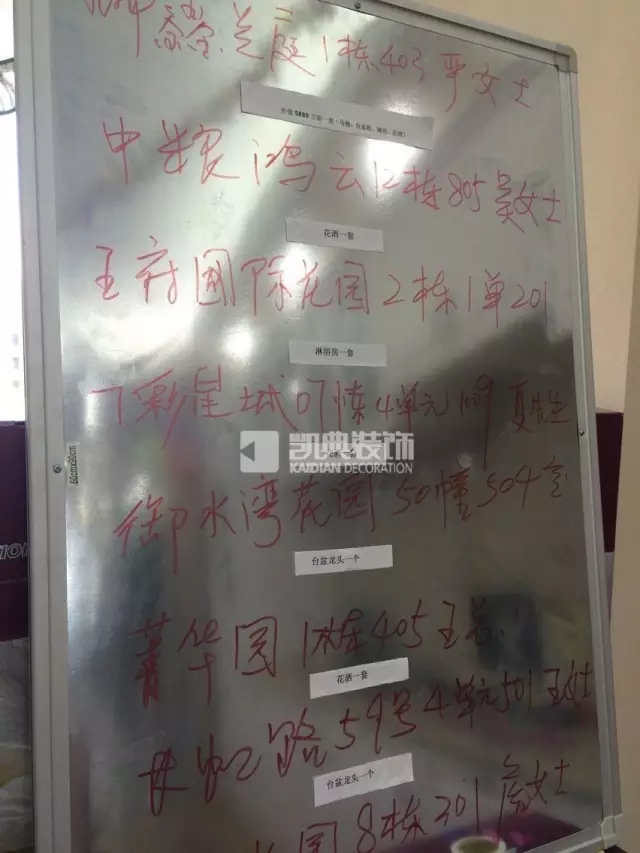 鑫兰庭1栋403严女士
中粮鸿云12栋805吴女士
花洒一套
王府国际花园2栋1单201
淋浴房一套
7彩星城07栋4单元109夏先生
60cmx90cm
凯典装饰
KAIDIAN DECORATION
御水湾花园50幢504室
台盆龙头一个
菁华园1栋405王总
花洒一套
虹路59号4单元501王女士
台盆龙头一个
园8栋301 女士